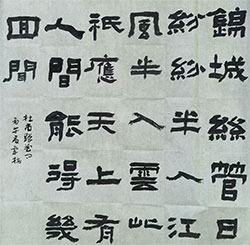 錦城絲管日
紛紛半入江
風半入雲此
祇應天上有
人間能得幾
回聞
杜甫